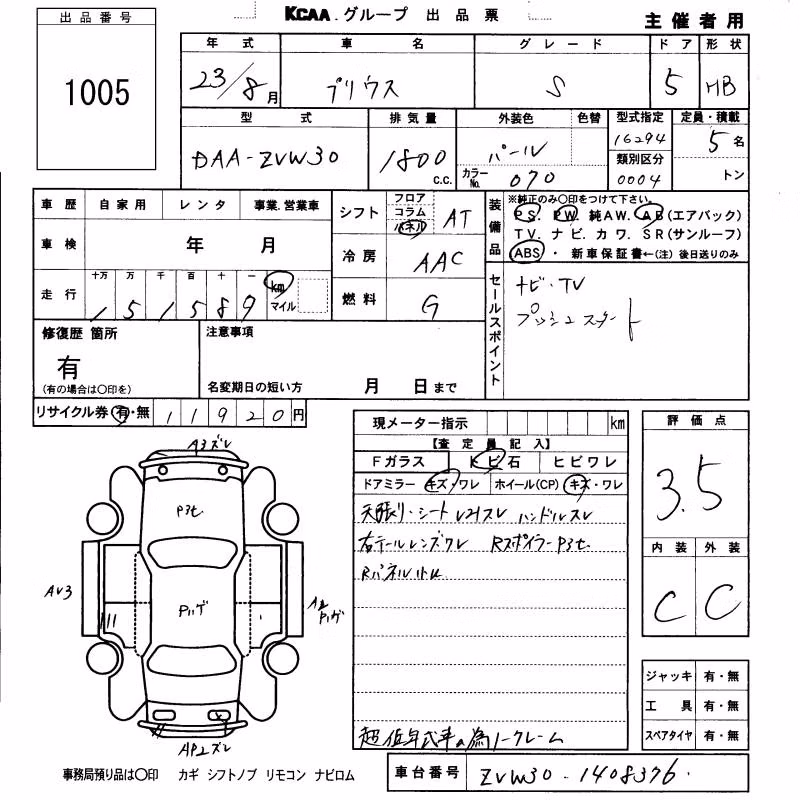 KCAA.グループ 出品票
主催者用
出品番号
1005
年式 車名 グレード ドア 形状
23/8月 プリウス S 5 HB
型式 排気量 外装色 色替 型式指定 定員・積載
DAA-ZVW30 1800 C.C. パール 16294 5名
カラーNo. 070 類別区分 0004 トン
車歴 自家用 レンタ 事業.営業車
車検 年 月
走行 十万 万 千 百 十 一 km マイル
151589
シフト フロア コラム パネル AT
冷房 AAC
燃料 G
装備品
※純正のみ〇印をつけて下さい。
PS. PW. 純AW. AB(エアバック)
TV. ナビ. カワ. SR(サンルーフ)
ABS ・ 新車保証書←(注)後日送りのみ
セールスポイント
ナビ・TV
プッシュスタート
修復歴 箇所
有
(有の場合は〇印を)
注意事項
名変期日の短い方 月 日まで
リサイクル券 有・無 11920円
現メーター指示 km
【査定員記入】
Fガラス トビ石 ヒビワレ
ドアミラー キズ・ワレ ホイール(CP) キズ・ワレ
天張り・シート ハンドルスレ
右テールレンズワレ Rスポイラー P3セ
Rパネル小
超低年式車の為ノークレーム
評価点
3.5
内装 外装
C C
ジャッキ 有・無
工具 有・無
スペアタイヤ 有・無
A3ズレ
P3セ
AV3
Pハゲ
Pハゲ
AP2ズレ
事務局預り品は〇印 カギ シフトノブ リモコン ナビロム
車台番号 ZVW30-1408376